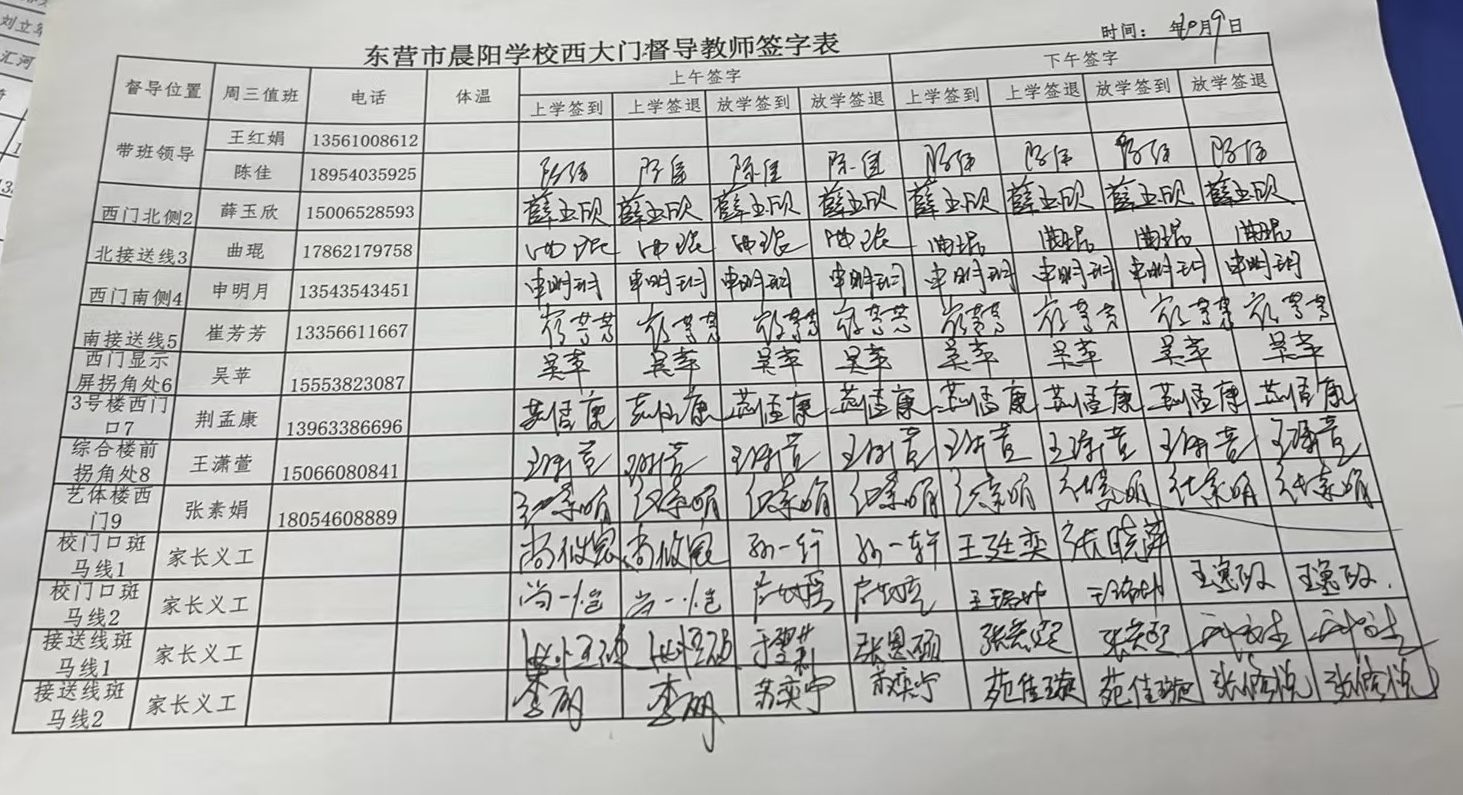 刘立军
汇河
东营市晨阳学校西大门督导教师签字表
时间： 年10月9日
督导位置 周三值班 电话 体温 上午签字 下午签字
上学签到 上学签退 放学签到 放学签退 上学签到 上学签退 放学签到 放学签退
带班领导 王红娟 13561008612
陈佳 18954035925 陈佳 陈佳 陈佳 陈佳 陈佳 陈佳 陈佳 陈佳
西门北侧2 薛玉欣 15006528593 薛玉欣 薛玉欣 薛玉欣 薛玉欣 薛玉欣 薛玉欣 薛玉欣 薛玉欣
北接送线3 曲琨 17862179758 曲琨 曲琨 曲琨 曲琨 曲琨 曲琨 曲琨 曲琨
西门南侧4 申明月 13543543451 申明玥 申明玥 申明玥 申明玥 申明玥 申明玥 申明玥 申明玥
南接送线5 崔芳芳 13356611667 崔芳芳 崔芳芳 崔芳芳 崔芳芳 崔芳芳 崔芳芳 崔芳芳 崔芳芳
西门显示屏拐角处6 吴苹 15553823087 吴苹 吴苹 吴苹 吴苹 吴苹 吴苹 吴苹 吴苹
3号楼西门口7 荆孟康 13963386696 荆孟康 荆孟康 荆孟康 荆孟康 荆孟康 荆孟康 荆孟康 荆孟康
综合楼前拐角处8 王潇萱 15066080841 王潇萱 王潇萱 王潇萱 王潇萱 王潇萱 王潇萱 王潇萱 王潇萱
艺体楼西门9 张素娟 18054608889 张素娟 张素娟 张素娟 张素娟 张素娟 张素娟 张素娟 张素娟
校门口斑马线1 家长义工 孙一轩 孙一轩 王廷奕 张晓萍
校门口斑马线2 家长义工 尚一恺 尚一恺 王逸政 王逸政
接送线斑马线1 家长义工 张恩硕
接送线斑马线2 家长义工 李明 李明 苏奕宁 苏奕宁 苑佳璇 苑佳璇 张修悦 张修悦